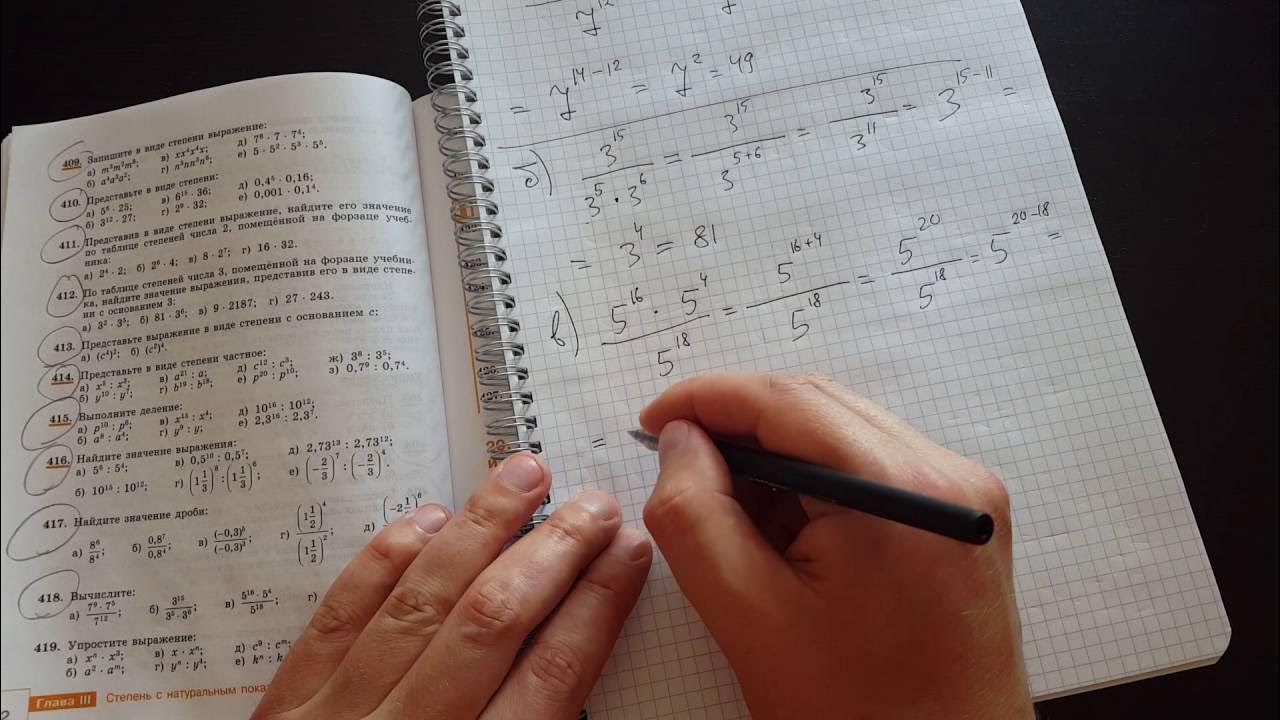 409. Запишите в виде степени выражение:
а) m³m²m⁸; в) xx⁴x⁴x; д) 7⁸ · 7 · 7⁴;
б) a⁴a³a²; г) n⁵nn³n⁶; е) 5 · 5² · 5³ · 5⁵.
410. Представьте в виде степени:
а) 5⁸ · 25; в) 6¹⁵ · 36; д) 0,4⁵ · 0,16;
б) 3¹² · 27; г) 2⁹ · 32; е) 0,001 · 0,1⁴.
411. Представив в виде степени выражение, найдите его значение
по таблице степеней числа 2, помещённой на форзаце учеб-
ника:
а) 2⁴ · 2; б) 2⁶ · 4; в) 8 · 2⁷; г) 16 · 32.
412. По таблице степеней числа 3, помещённой на форзаце учебни-
ка, найдите значение выражения, представив его в виде степе-
ни с основанием 3:
а) 3² · 3⁵; б) 81 · 3⁶; в) 9 · 2187; г) 27 · 243.
413. Представьте выражение в виде степени с основанием c:
а) (c⁴)²; б) (c²)⁴.
414. Представьте в виде степени частное:
а) x⁵ : x³; в) a²¹ : a; д) c¹² : c³; ж) 3⁸ : 3⁵;
б) y¹⁰ : y⁷; г) b¹⁹ : b¹⁸; е) p²⁰ : p¹⁰; з) 0,7⁹ : 0,7⁴.
415. Выполните деление:
а) p¹⁰ : p⁶; в) x¹⁵ : x⁴; д) 10¹⁶ : 10¹²;
б) a⁸ : a⁴; г) y⁹ : y; е) 2,3¹⁶ : 2,3⁷.
416. Найдите значение выражения:
а) 5⁶ : 5⁴; в) 0,5¹⁰ : 0,5⁷; д) 2,73¹³ : 2,73¹²;
б) 10¹⁵ : 10¹²; г) (1 1/3)⁸ : (1 1/3)⁶; е) (−2/3)⁷ : (−2/3)⁴.
417. Найдите значение дроби:
а) 8⁶/8⁴; б) 0,8⁷/0,8⁴; в) (−0,3)⁵/(−0,3)³; г) (1 1/2)⁴/(1 1/2)²; д) (−2 1/
418. Вычислите:
а) 7⁹ · 7⁵/7¹²; б) 3¹⁵/3⁵ · 3⁶; в) 5¹⁶ · 5⁴/5¹⁸; г)
419. Упростите выражение:
а) xⁿ · x³; в) x · xⁿ; д) c⁹ : cᵐ;
б) a² · aᵐ; г) yⁿ : y⁴; е) kⁿ : k
Глава III Степень с натуральным пока
= 7¹⁴⁻¹² = 7² = 49
б) 3¹⁵/3⁵ · 3⁶ = 3¹⁵/3⁵⁺⁶ = 3¹⁵/3¹¹ = 3¹⁵⁻¹¹ =
= 3⁴ = 81
в) 5¹⁶ · 5⁴/5¹⁸ = 5¹⁶⁺⁴/5¹⁸ = 5²⁰/5¹⁸ = 5²⁰⁻¹⁸ =
=